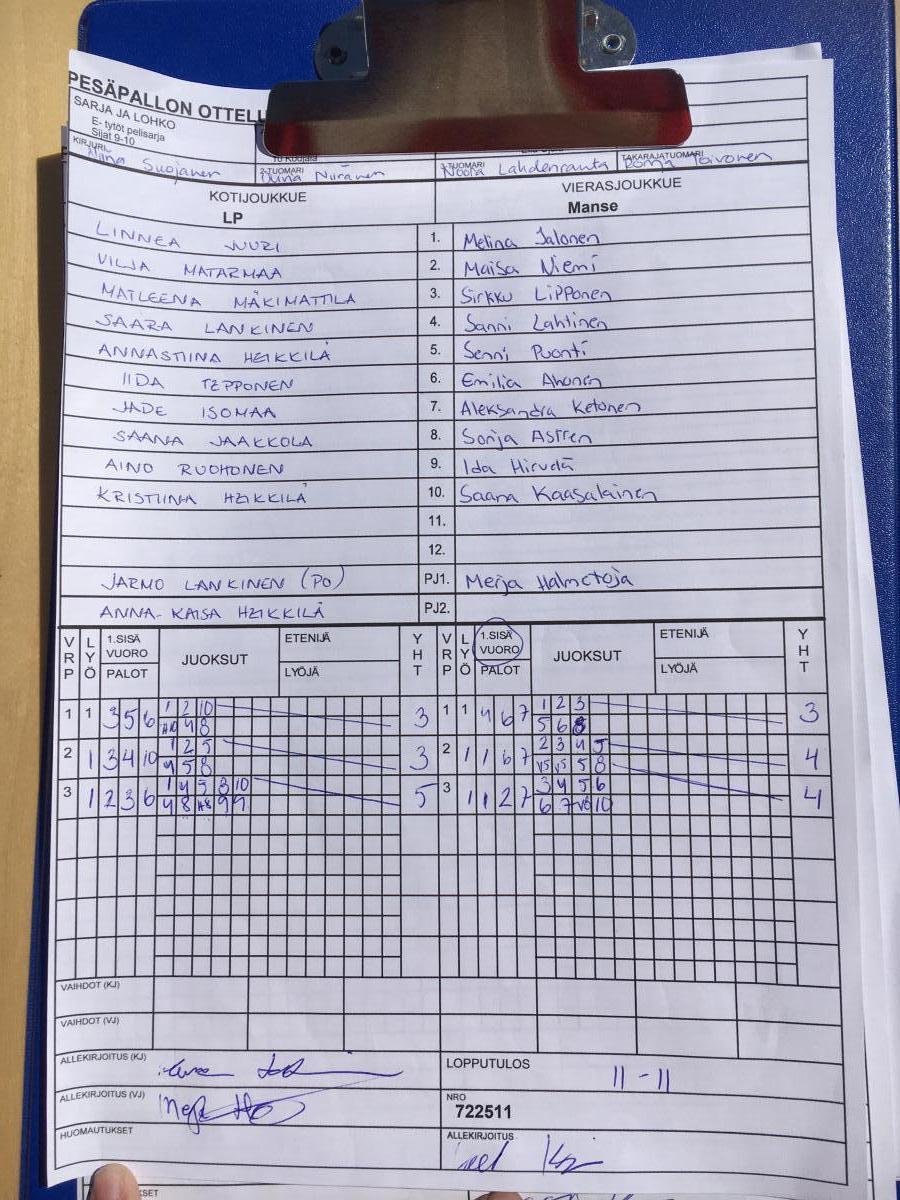 PESÄPALLON OTTELU
SARJA JA LOHKO
E- tytöt pelisarja
Sijat 9-10
KIRJURI Suojanen 2-TUOMARI Niiranen 3-TUOMARI Noora Lahdenranta TAKARAJATUOMARI Toivonen
KOTIJOUKKUE VIERASJOUKKUE
LP Manse
LINNEA 1. Melina Jalonen
VILJA MATARMAA 2. Maisa Niemi
MATLEENA MÄKIMATTILA 3. Sirkku Lipponen
SAARA LANKINEN 4. Sanni Lahtinen
ANNASTIINA HEIKKILÄ 5. Senni Puonti
IIDA TEPPONEN 6. Emilia Ahonen
JADE ISOMAA 7. Aleksandra Ketonen
SAANA JAAKKOLA 8. Sonja
AINO RUOHONEN 9. Ida
KRISTIINA HEIKKILÄ 10. Saana Kaasalainen
11.
12.
JARMO LANKINEN (PO) PJ1. Merja
ANNA-KAISA HEIKKILÄ PJ2.
VRP LYÖ 1.SISÄ VUORO PALOT JUOKSUT ETENIJÄ LYÖJÄ YHT VRP LYÖ 1.SISÄ VUORO PALOT JUOKSUT ETENIJÄ LYÖJÄ YHT
1 1 3 5 6 1 2 10 3 1 1 4 6 7 1 2 3 3
4 8 5 6 8
2 1 3 4 10 1 2 5 3 2 1 1 6 7 2 3 4 5 4
4 5 8 5 8
3 1 2 3 6 1 4 5 8 10 5 3 1 1 2 7 3 4 5 6 4
4 8 6 7 10
VAIHDOT (KJ)
VAIHDOT (VJ)
ALLEKIRJOITUS (KJ) LOPPUTULOS 11-11
ALLEKIRJOITUS (VJ) NRO
722511
HUOMAUTUKSET ALLEKIRJOITUS